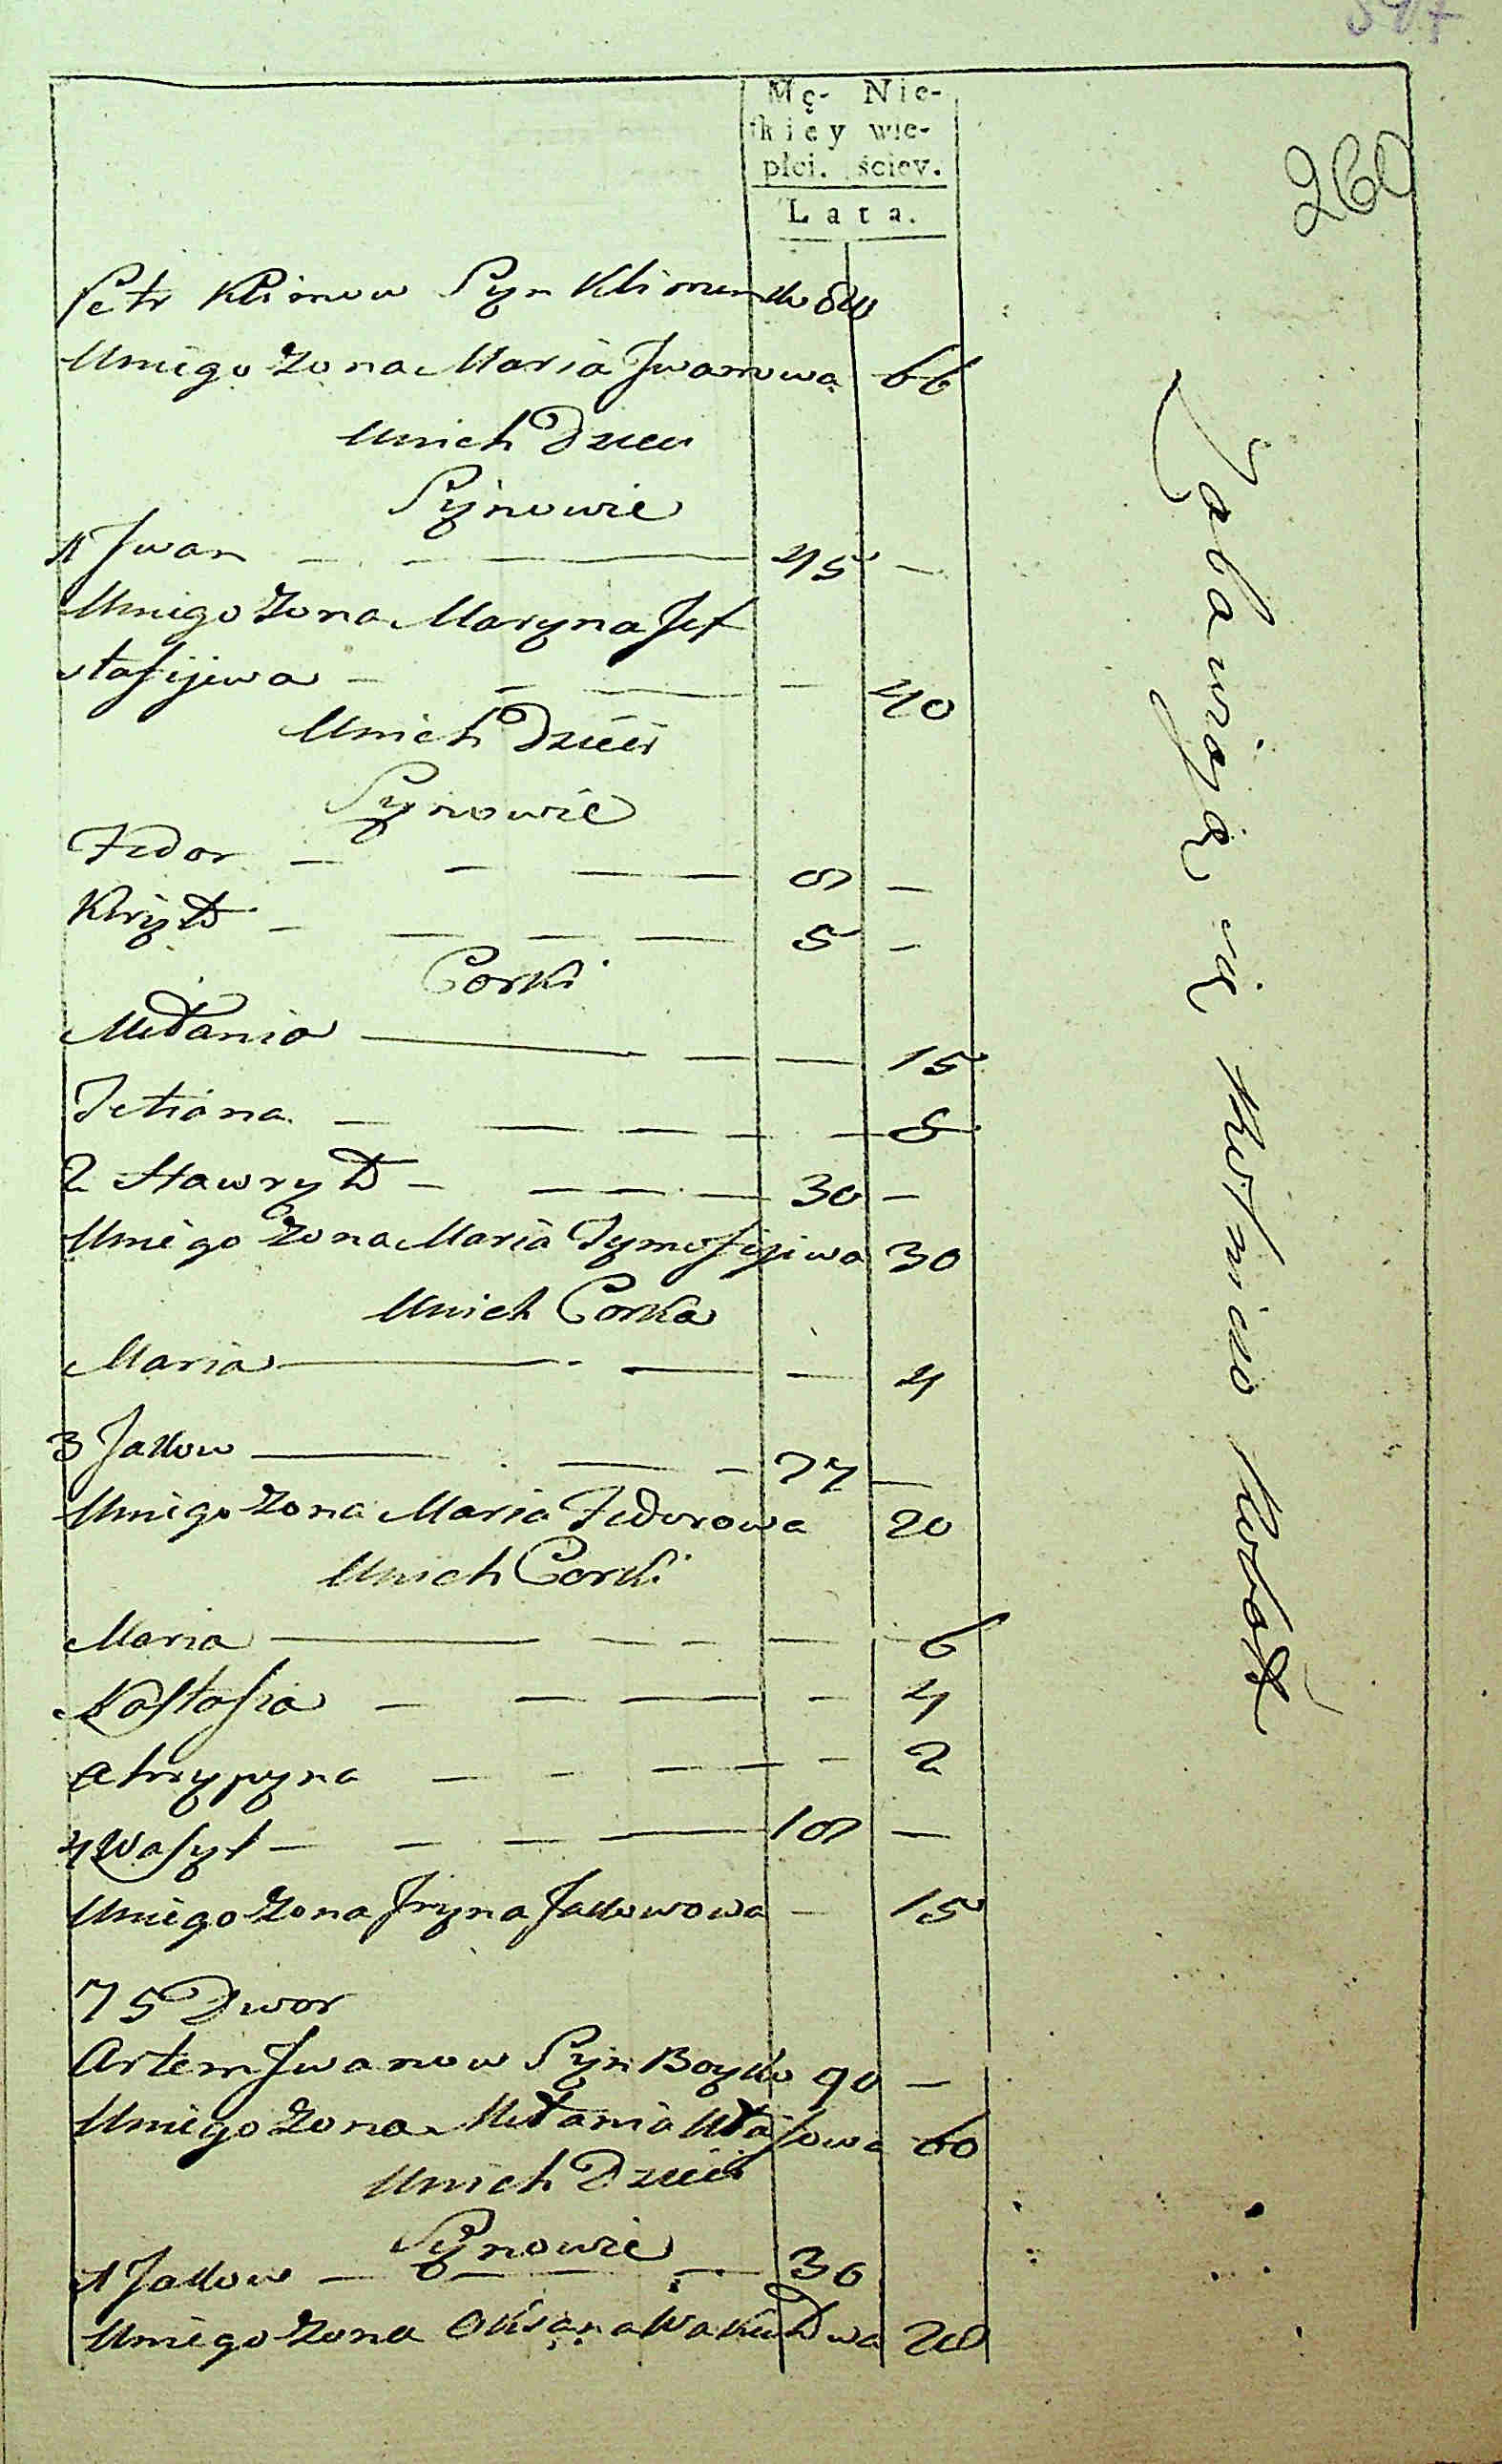 260
Mę- Nie-
skiey wie-
płci. ściey.
Lata.
Petr Klimow Syn Klimenko 80
Uniego Zona Maria Jwanowa 66
Unich Dzieci
Synowie
1 Jwan — — 45 —
Uniego Zona Maryna Jef
stafijewa — — — — 40
Unich Dzieci
Synowie
Fedor — — — 8 —
Kiryło — — — — 5 —
Corki
Mełania — — — 15
Tetiana — — — — — 8
2 Hawryło — — — 30 —
Uniego Zona Maria Tymofijewa 30
Unich Corka
Maria — — — 4
3 Jakow — — — 27 —
Uniego Zona Maria Fedorowa 20
Unich Corki
Maria — — — — 6
Nastasia — — — — 4
Ahrypyna — — — — 2
4 Wasyl — — — — 18 —
Uniego Zona Jryna Jakowowa — 15
75 Dwor
Artem Jwanow Syn Boyko 90 —
Uniego Zona Mełania Własowa 60
Unich Dzieci
Synowie
1 Jakow — — — — 30
Uniego Zona Oksana Wakułowa 20
Zabawiaią się